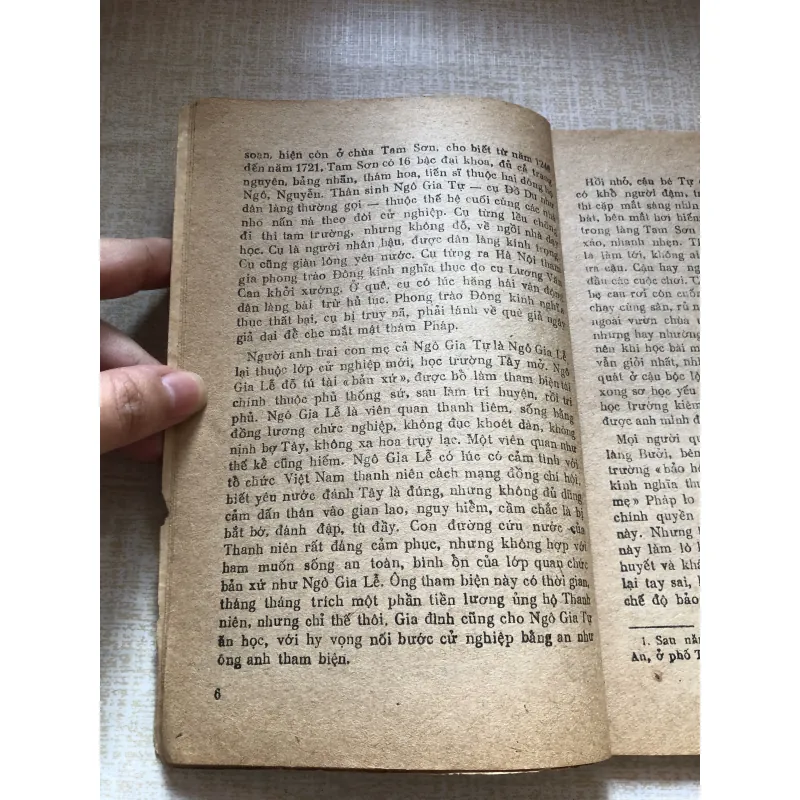 soạn, hiện còn ở chùa Tam Sơn, cho biết từ năm 1246
đến năm 1721, Tam Sơn có 16 bậc đại khoa, đủ cả trạng
nguyên, bảng nhãn, thám hoa, tiến sĩ thuộc hai dòng họ
Ngô, Nguyễn. Thân sinh Ngô Gia Tự — cụ Đồ Du như
dân làng thường gọi — thuộc thế hệ cuối cùng các nhà
nho nấn ná theo đòi cử nghiệp. Cụ từng lều chõng
đi thi tam trường, nhưng không đỗ, về ngồi nhà dạy
học. Cụ là người nhân hậu, được dân làng kính trọng.
Cụ cũng giàu lòng yêu nước. Cụ từng ra Hà Nội tham
gia phong trào Đông kinh nghĩa thục do cụ Lương Văn
Can khởi xướng. Ở quê, cụ có lúc hăng hái vận động
dân làng bài trừ hủ tục. Phong trào Đông kinh nghĩa
thục thất bại, cụ bị truy nã, phải lánh về quê giả ngây
giả dại để che mắt mật thám Pháp.
Người anh trai con mẹ cả Ngô Gia Tự là Ngô Gia Lễ
lại thuộc lớp cử nghiệp mới, học trường Tây mở. Ngô
Gia Lễ đỗ tú tài «bản xứ», được bổ làm tham biện tài
chính thuộc phủ thống sứ, sau làm tri huyện, rồi tri
phủ. Ngô Gia Lễ là viên quan thanh liêm, sống bằng
đồng lương chức nghiệp, không đục khoét dân, không
nịnh bợ Tây, không xa hoa trụy lạc. Một viên quan như
thế kể cũng hiếm. Ngô Gia Lễ có lúc có cảm tình với
tổ chức Việt Nam thanh niên cách mạng đồng chí hội,
biết yêu nước đánh Tây là đúng, nhưng không đủ dũng
cảm dấn thân vào gian lao, nguy hiểm, cầm chắc là bị
bắt bớ, đánh đập, tù đầy. Con đường cứu nước của
Thanh niên rất đáng cảm phục, nhưng không hợp với
ham muốn sống an toàn, bình ổn của lớp quan chức
bản xứ như Ngô Gia Lễ. Ông tham biện này có thời gian,
tháng tháng trích một phần tiền lương ủng hộ Thanh
niên, nhưng chỉ thế thôi. Gia đình cũng cho Ngô Gia Tự
ăn học, với hy vọng nối bước cử nghiệp bằng an như
ông anh tham biện.
6
Hồi nhỏ, cậu bé Tự
có khổ người đậm, tr
thi cặp mắt sáng nhìn
bát, bên mắt hơi hiếm
trong làng Tam Sơn
xáo, nhanh nhẹn. Th
là làm tới, không ai
ưa cậu. Cậu hay ng
đầu các cuộc chơi. T
hẹ cau rơi còn cuốn
chạy cùng sân, rủ n
ngoài vườn chùa
hay như nhường
nên khi học bài m
vẫn giỏi nhất, nh
quát ở cậu bộc lộ
xong sơ học yếu
học trường kiêm
được anh mình đ
Mọi người qu
làng Bưởi, bên
trường «bảo hộ
kinh nghĩa thụ
mẹ» Pháp lo
chính quyền
này. Nhưng
này làm lò
huyết và khá
lại tay sai, l
chế độ bảo
1. Sau năm
An, ở phố T